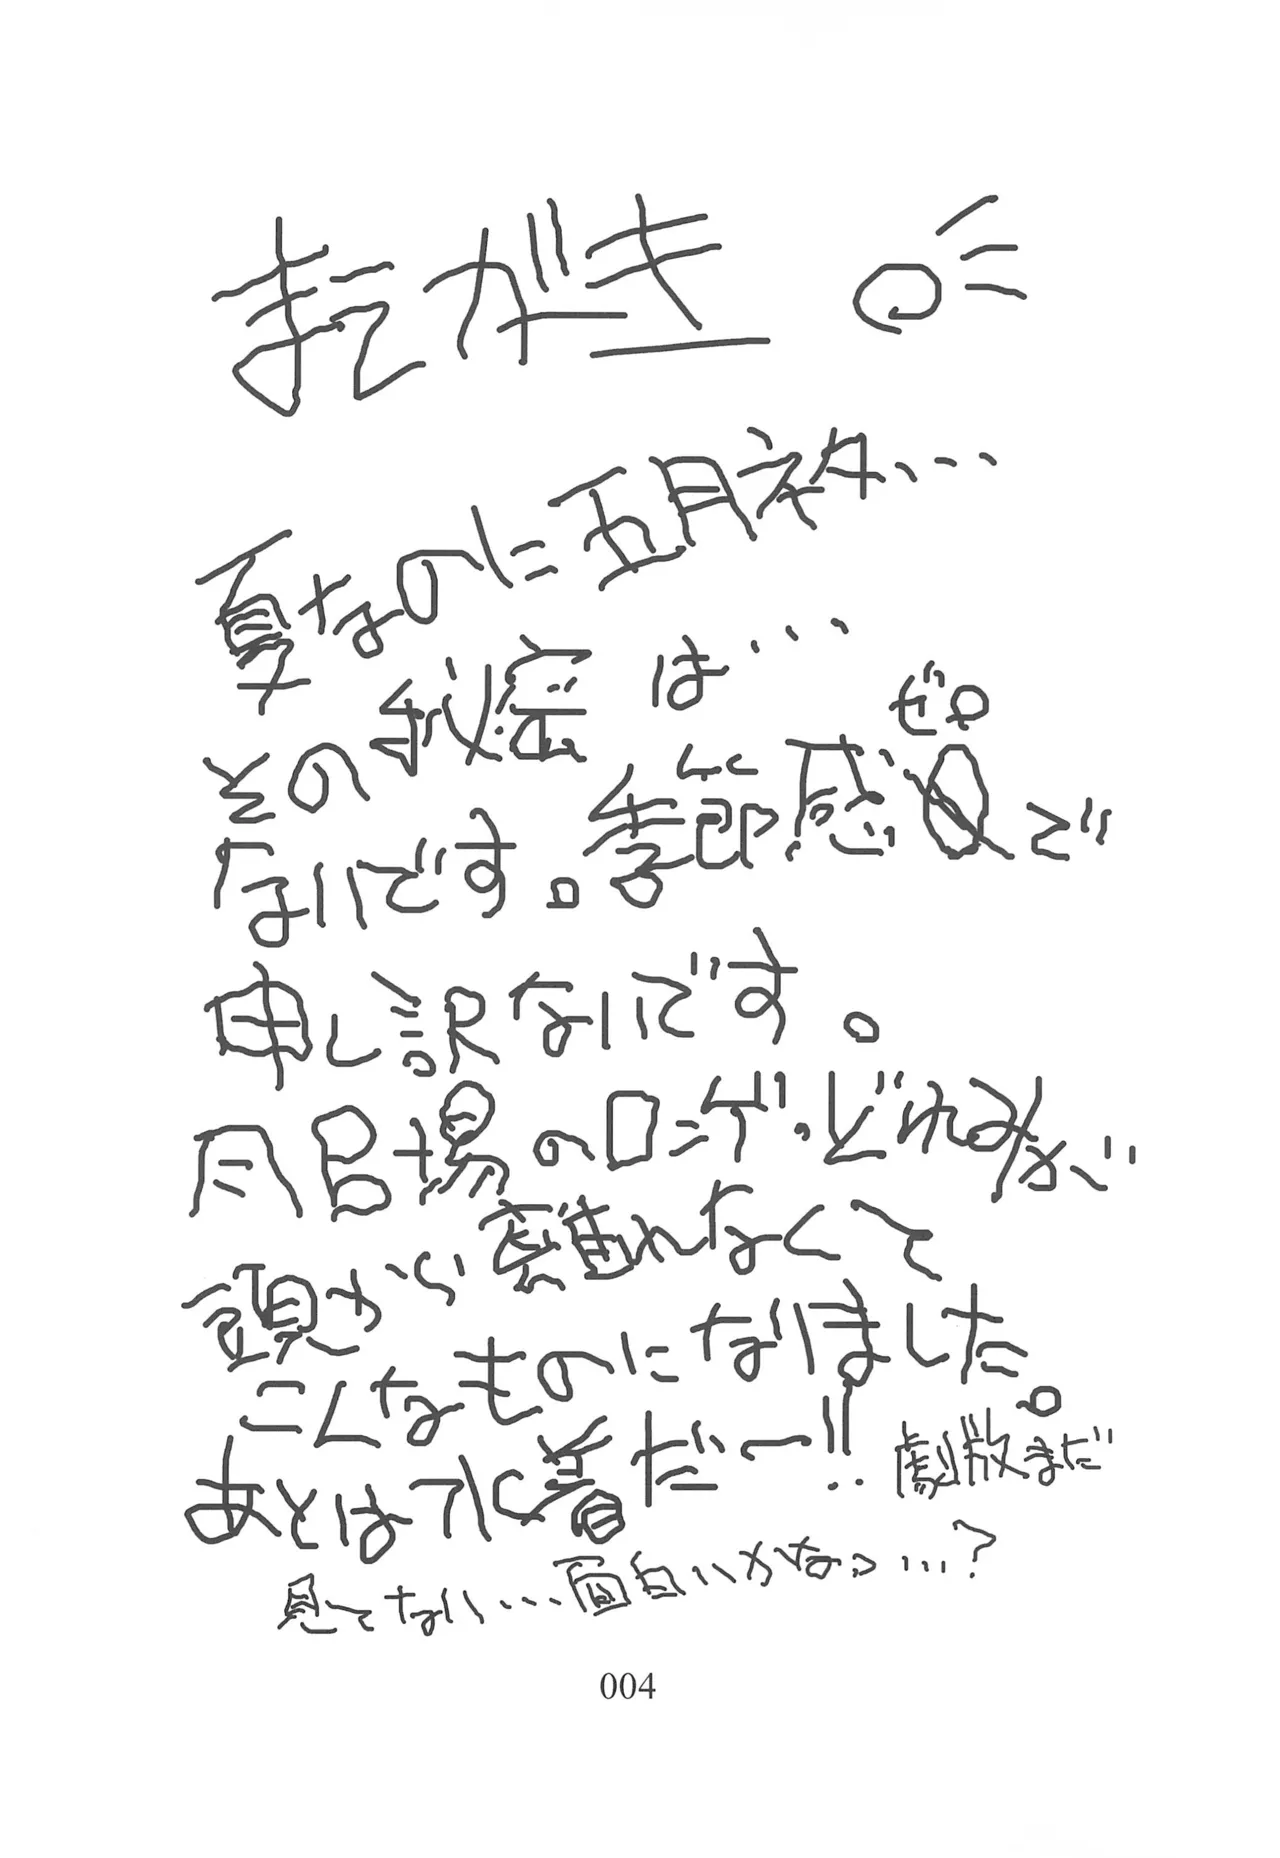 まえがき
夏なのに五月ネタ…
その秘密は…
ないです。季節感0で
ゼロ
申し訳ないです。
のロンゲ・どれみが
頭から離れなくて
こんなものになりました。
あとは水着だー!!
劇散まだ
見てない…面白いかなっ…?
004